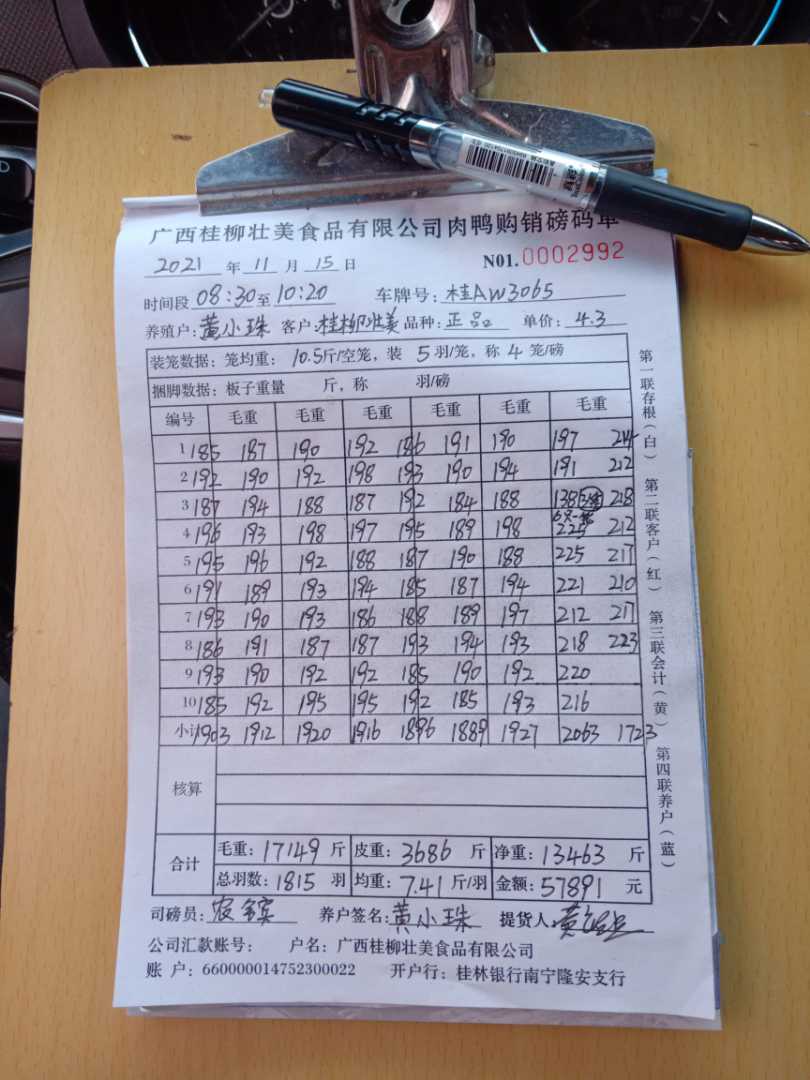 广西桂柳壮美食品有限公司肉鸭购销磅码单
2021 年 11 月 15 日 N01.0002992
时间段 08:30 至 10:20 车牌号: 桂AW3065
养殖户: 黄小珠 客户: 桂柳壮美 品种: 正品 单价: 4.3
装笼数据: 笼均重: 10.5斤/空笼, 装 5 羽/笼, 称 4 笼/磅
捆脚数据: 板子重量 斤, 称 羽/磅
编号 毛重 毛重 毛重 毛重 毛重 毛重
1 185 187 190 192 186 191 190 197 214
2 192 190 192 198 193 190 194 191 212
3 187 194 188 187 192 184 188 138 218
4 196 193 198 197 195 189 198 225 212
5 195 196 192 188 187 190 188 225 217
6 191 189 193 194 185 187 194 221 210
7 193 190 193 186 188 189 197 212 217
8 186 191 187 187 193 194 193 218 223
9 193 190 192 192 185 190 192 220
10 185 192 195 195 192 185 193 216
小计 1903 1912 1920 1916 1896 1889 1927 2063 1723
核算
合计 毛重: 17149 斤 皮重: 3686 斤 净重: 13463 斤
总羽数: 1815 羽 均重: 7.41 斤/羽 金额: 57891 元
司磅员: 养户签名: 黄小珠 提货人: 黄
公司汇款账号: 户名: 广西桂柳壮美食品有限公司
账 户: 660000014752300022 开户行: 桂林银行南宁隆安支行
第一联存根(白) 第二联客户(红) 第三联会计(黄) 第四联养户(蓝)